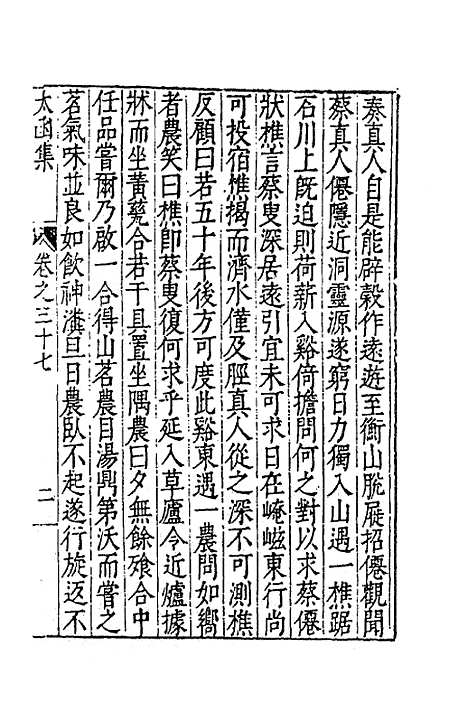 秦真人自是能辟穀作遠遊至衡山脫屣招僊觀聞
蔡真人僊隱近洞靈源遂窮日力獨入山遇一樵踞
石川上旣迫則荷薪入谿倚擔問何之對以求蔡僊
狀樵言蔡叟深居遠引宜未可求日在崦嵫東行尚
可投宿樵揭而濟水僅及脛真人從之深不可測樵
反顧曰若五十年後方可度此谿東遇一農問如嚮
者農笑曰樵即蔡叟復何求乎延入草廬令近爐據
牀而坐黃甆合若干具置坐隅農曰夕無餘飱合中
任品嘗爾乃啟一合得山茗農目湯鼎第沃而嘗之
茗氣味並良如飲神瀵旦日農臥不起遂行旋返不
太函集
卷之三十七
二